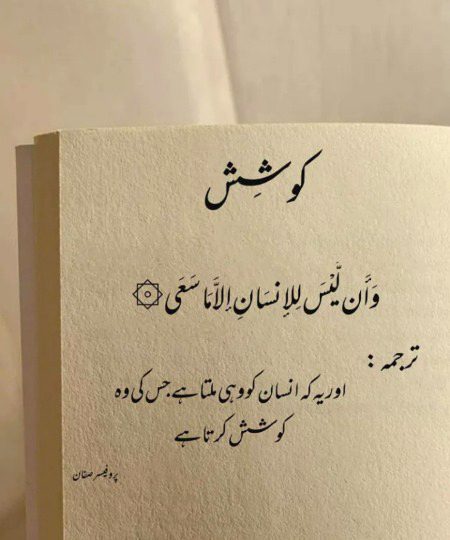 کوشِش
وَأَن لَّيْسَ لِلإِنسَانِ إِلاَّ مَا سَعَى ۞
ترجمہ :
اور یہ کہ انسان کو وہی ملتا ہے جس کی وہ
کوشش کرتا ہے